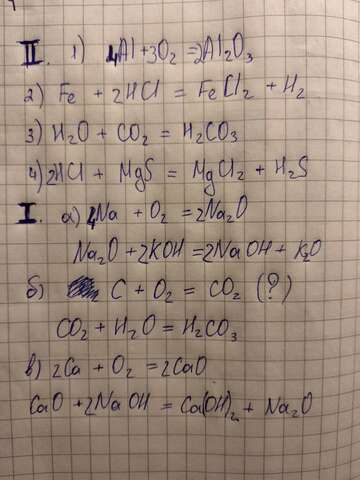 II. 1) 4Al + 3O₂ = 2Al₂O₃
2) Fe + 2HCl = FeCl₂ + H₂
3) H₂O + CO₂ = H₂CO₃
4) 2HCl + MgS = MgCl₂ + H₂S
I. а) 4Na + O₂ = 2Na₂O
Na₂O + 2KOH = 2NaOH + K₂O
б) C + O₂ = CO₂ (?)
CO₂ + H₂O = H₂CO₃
в) 2Ca + O₂ = 2CaO
CaO + 2NaOH = Ca(OH)₂ + Na₂O